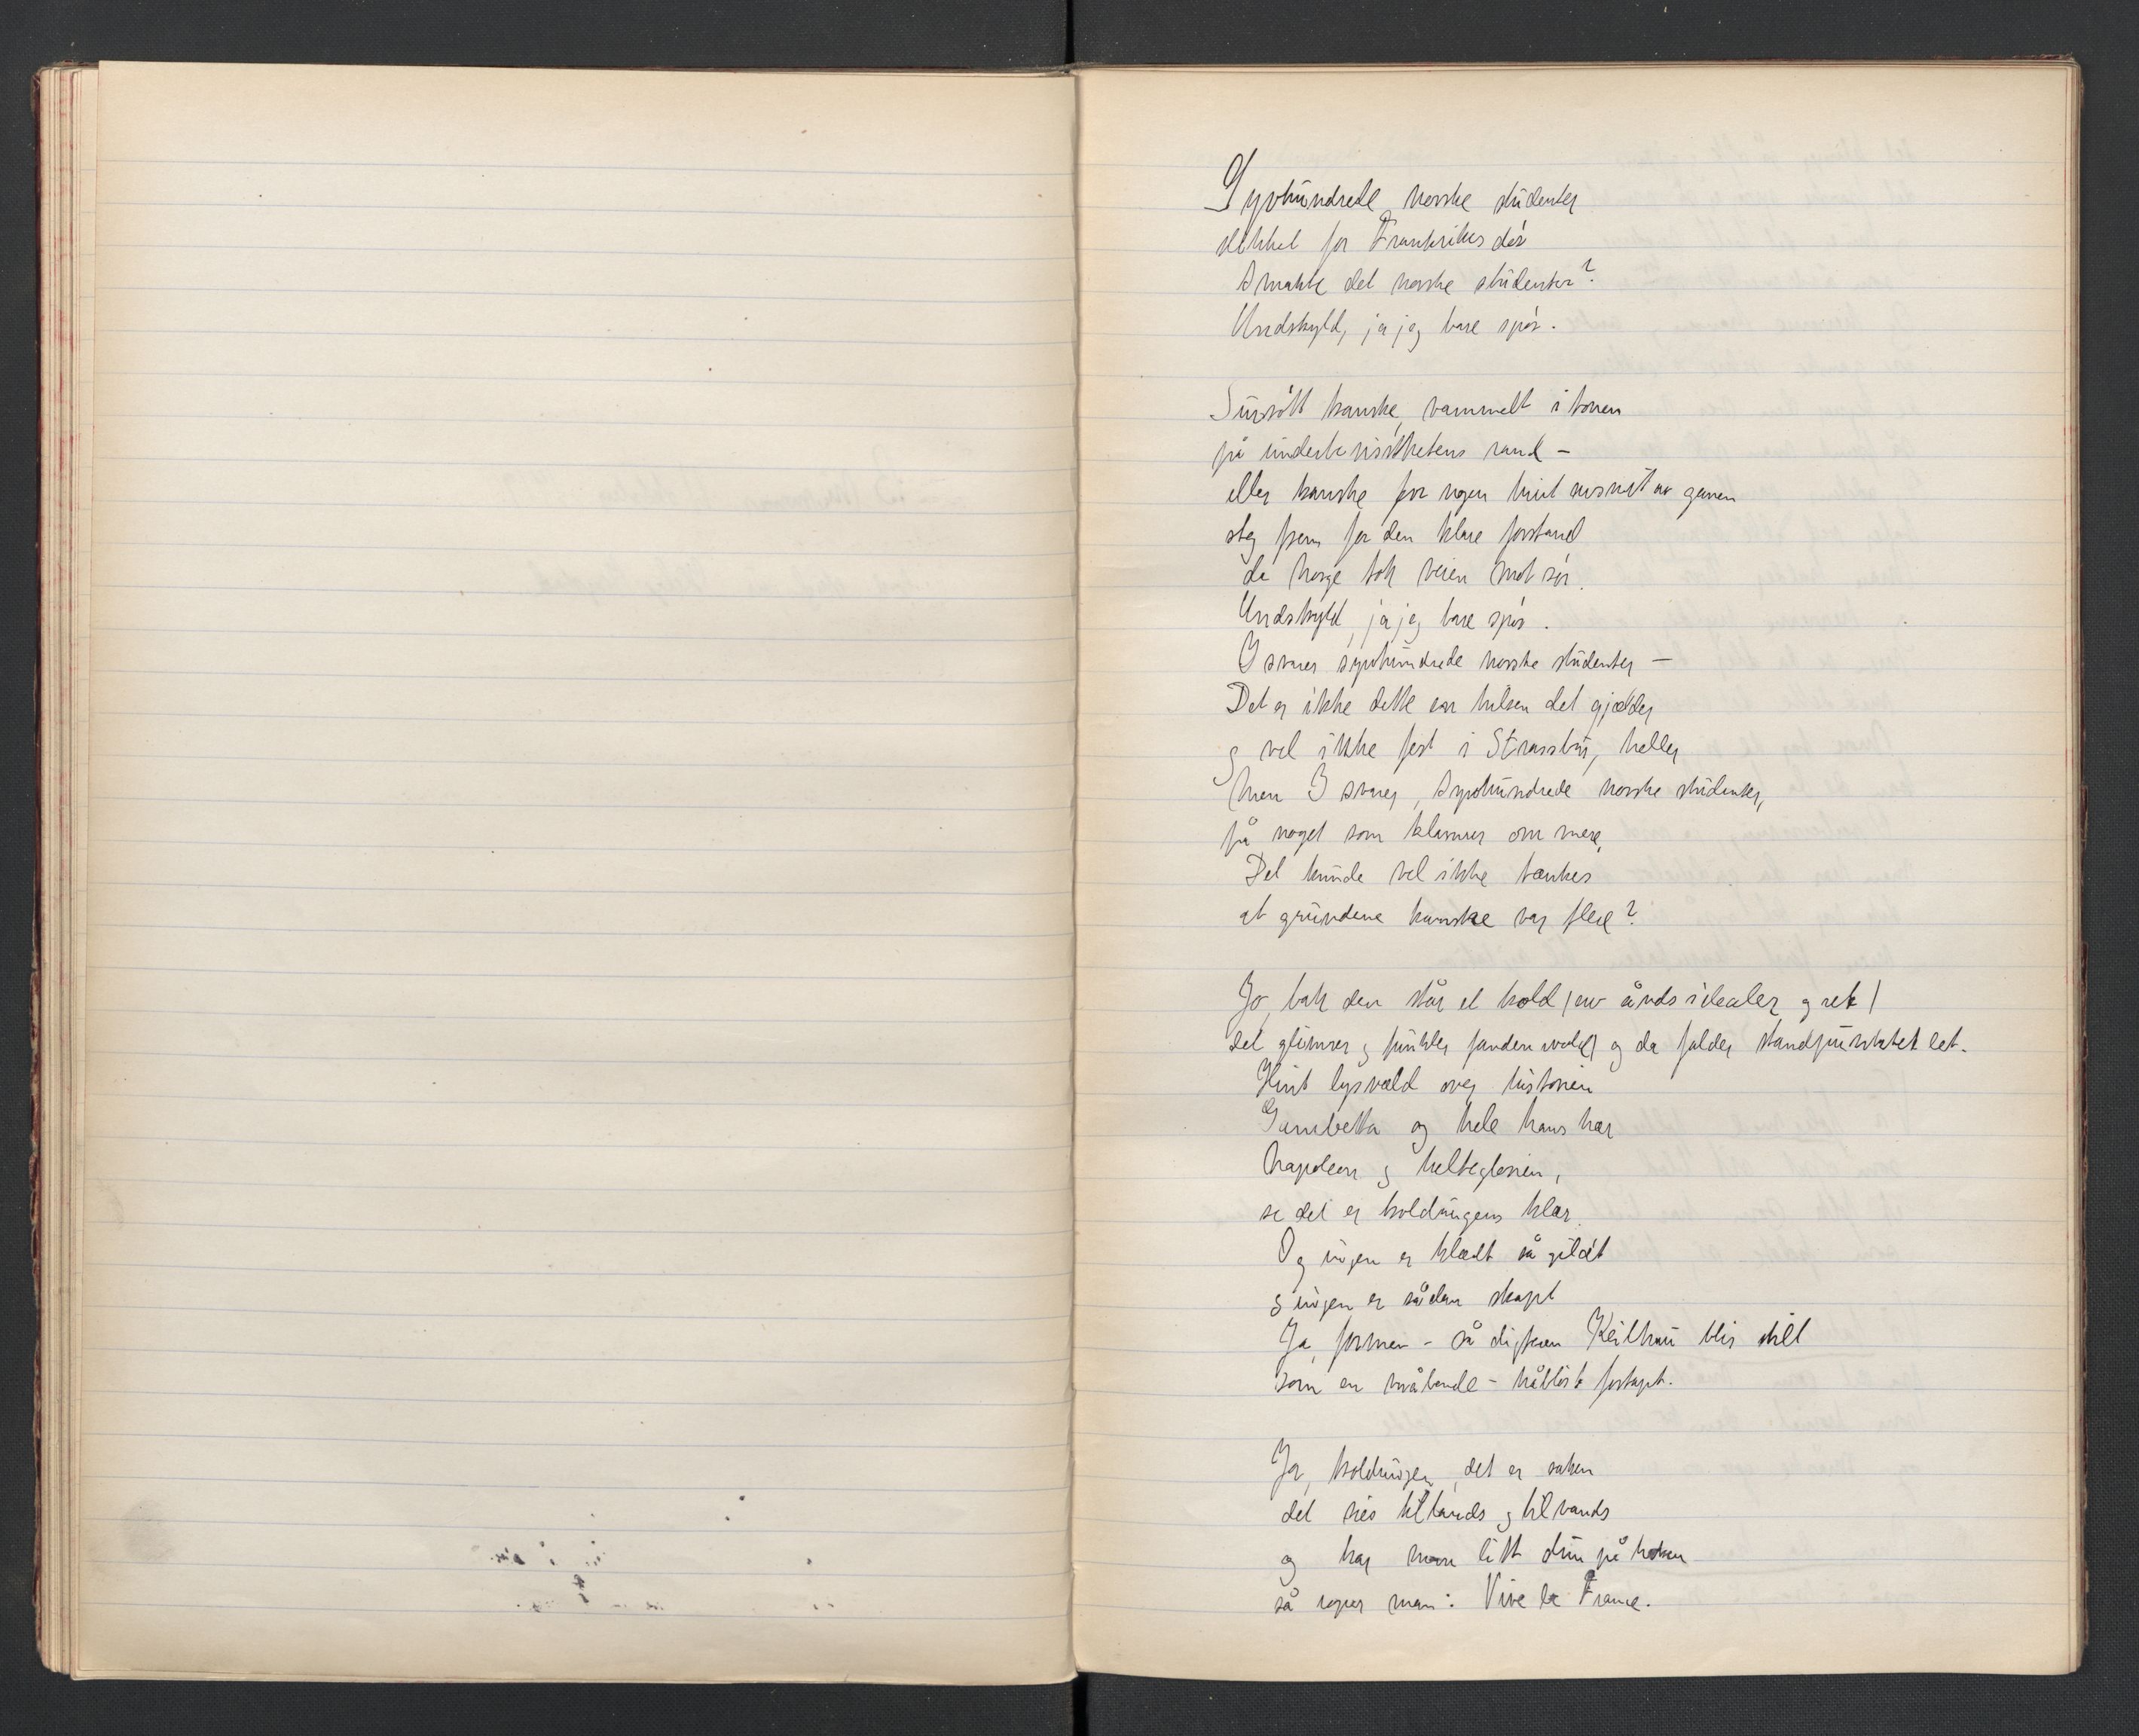 Syvhundrede norske studenter
slikket for Frankrikes dør
Smakte det norske studenter?
Undskyld, ja jeg bare spør.
Sursøtt kanske, vammelt i tonen
på underbevissthetens rand –
eller kanske for ingen hint av ganen
steg frem for den klare forstand
da Norge tok veien mot sør.
Undskyld, ja jeg bare spør.
I svarer syvhundrede norske studenter –
Det er ikke dette en hilsen det gjælder
og vel ikke fest i Strassbur, heller
men I svarer, syvhundrede norske studenter,
på noget som klinner om mere,
Det kunde vel ikke tænkes
at grundene kanske var flere?
Jo, bak den står et hold (av åndsidealer og ret)
det glimrer og funkler fanden ivold og da falder standpunktet let.
Hint lysvæld over historien
Gambetta og hele hans hær
Napoleon og helteglorien,
se det er holdningens klær.
Og ingen er klædt så gildt
og ingen er sådan skapt
Ja, formen – så digteren Keilhau blir still
som en måbende – håbløst fortapt.
Ja, holdningen, det er saken
det sies tillands og tilvands
og har man litt dun på haken
så roper man: Vive la France.